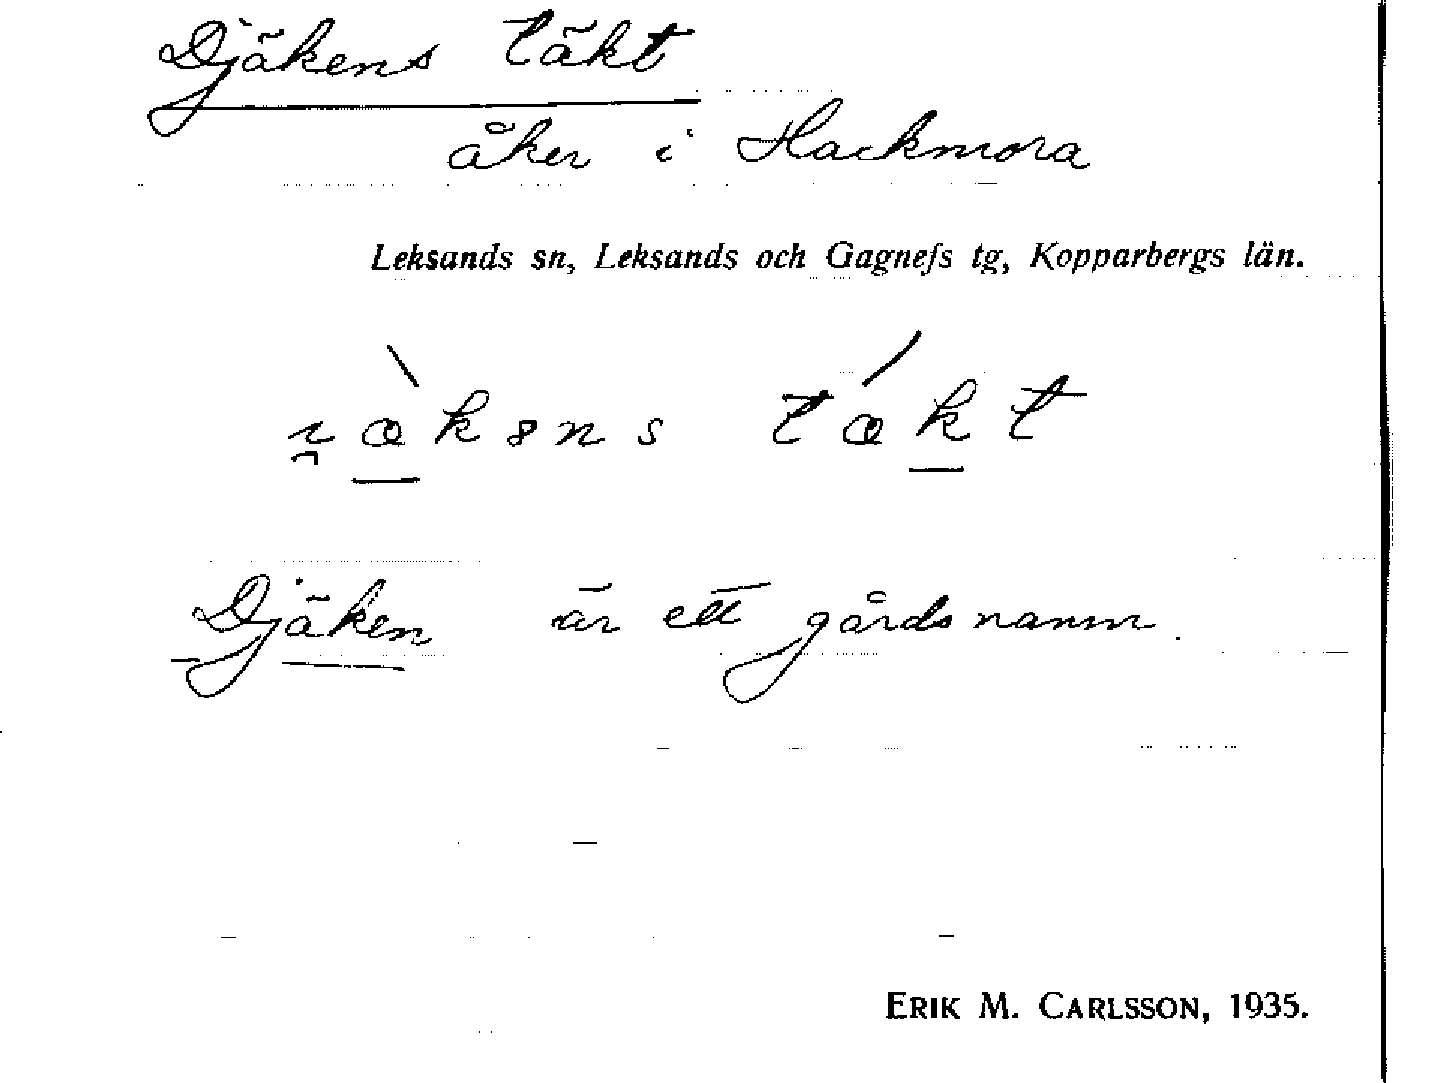 Djäkens täkt
åker i Hackmora
Leksands sn, Leksands och Gagnefs tg, Kopparbergs län.
täkt
Djäken är ett gårdsnamn.
ERIK M. CARLSSON, 1935.